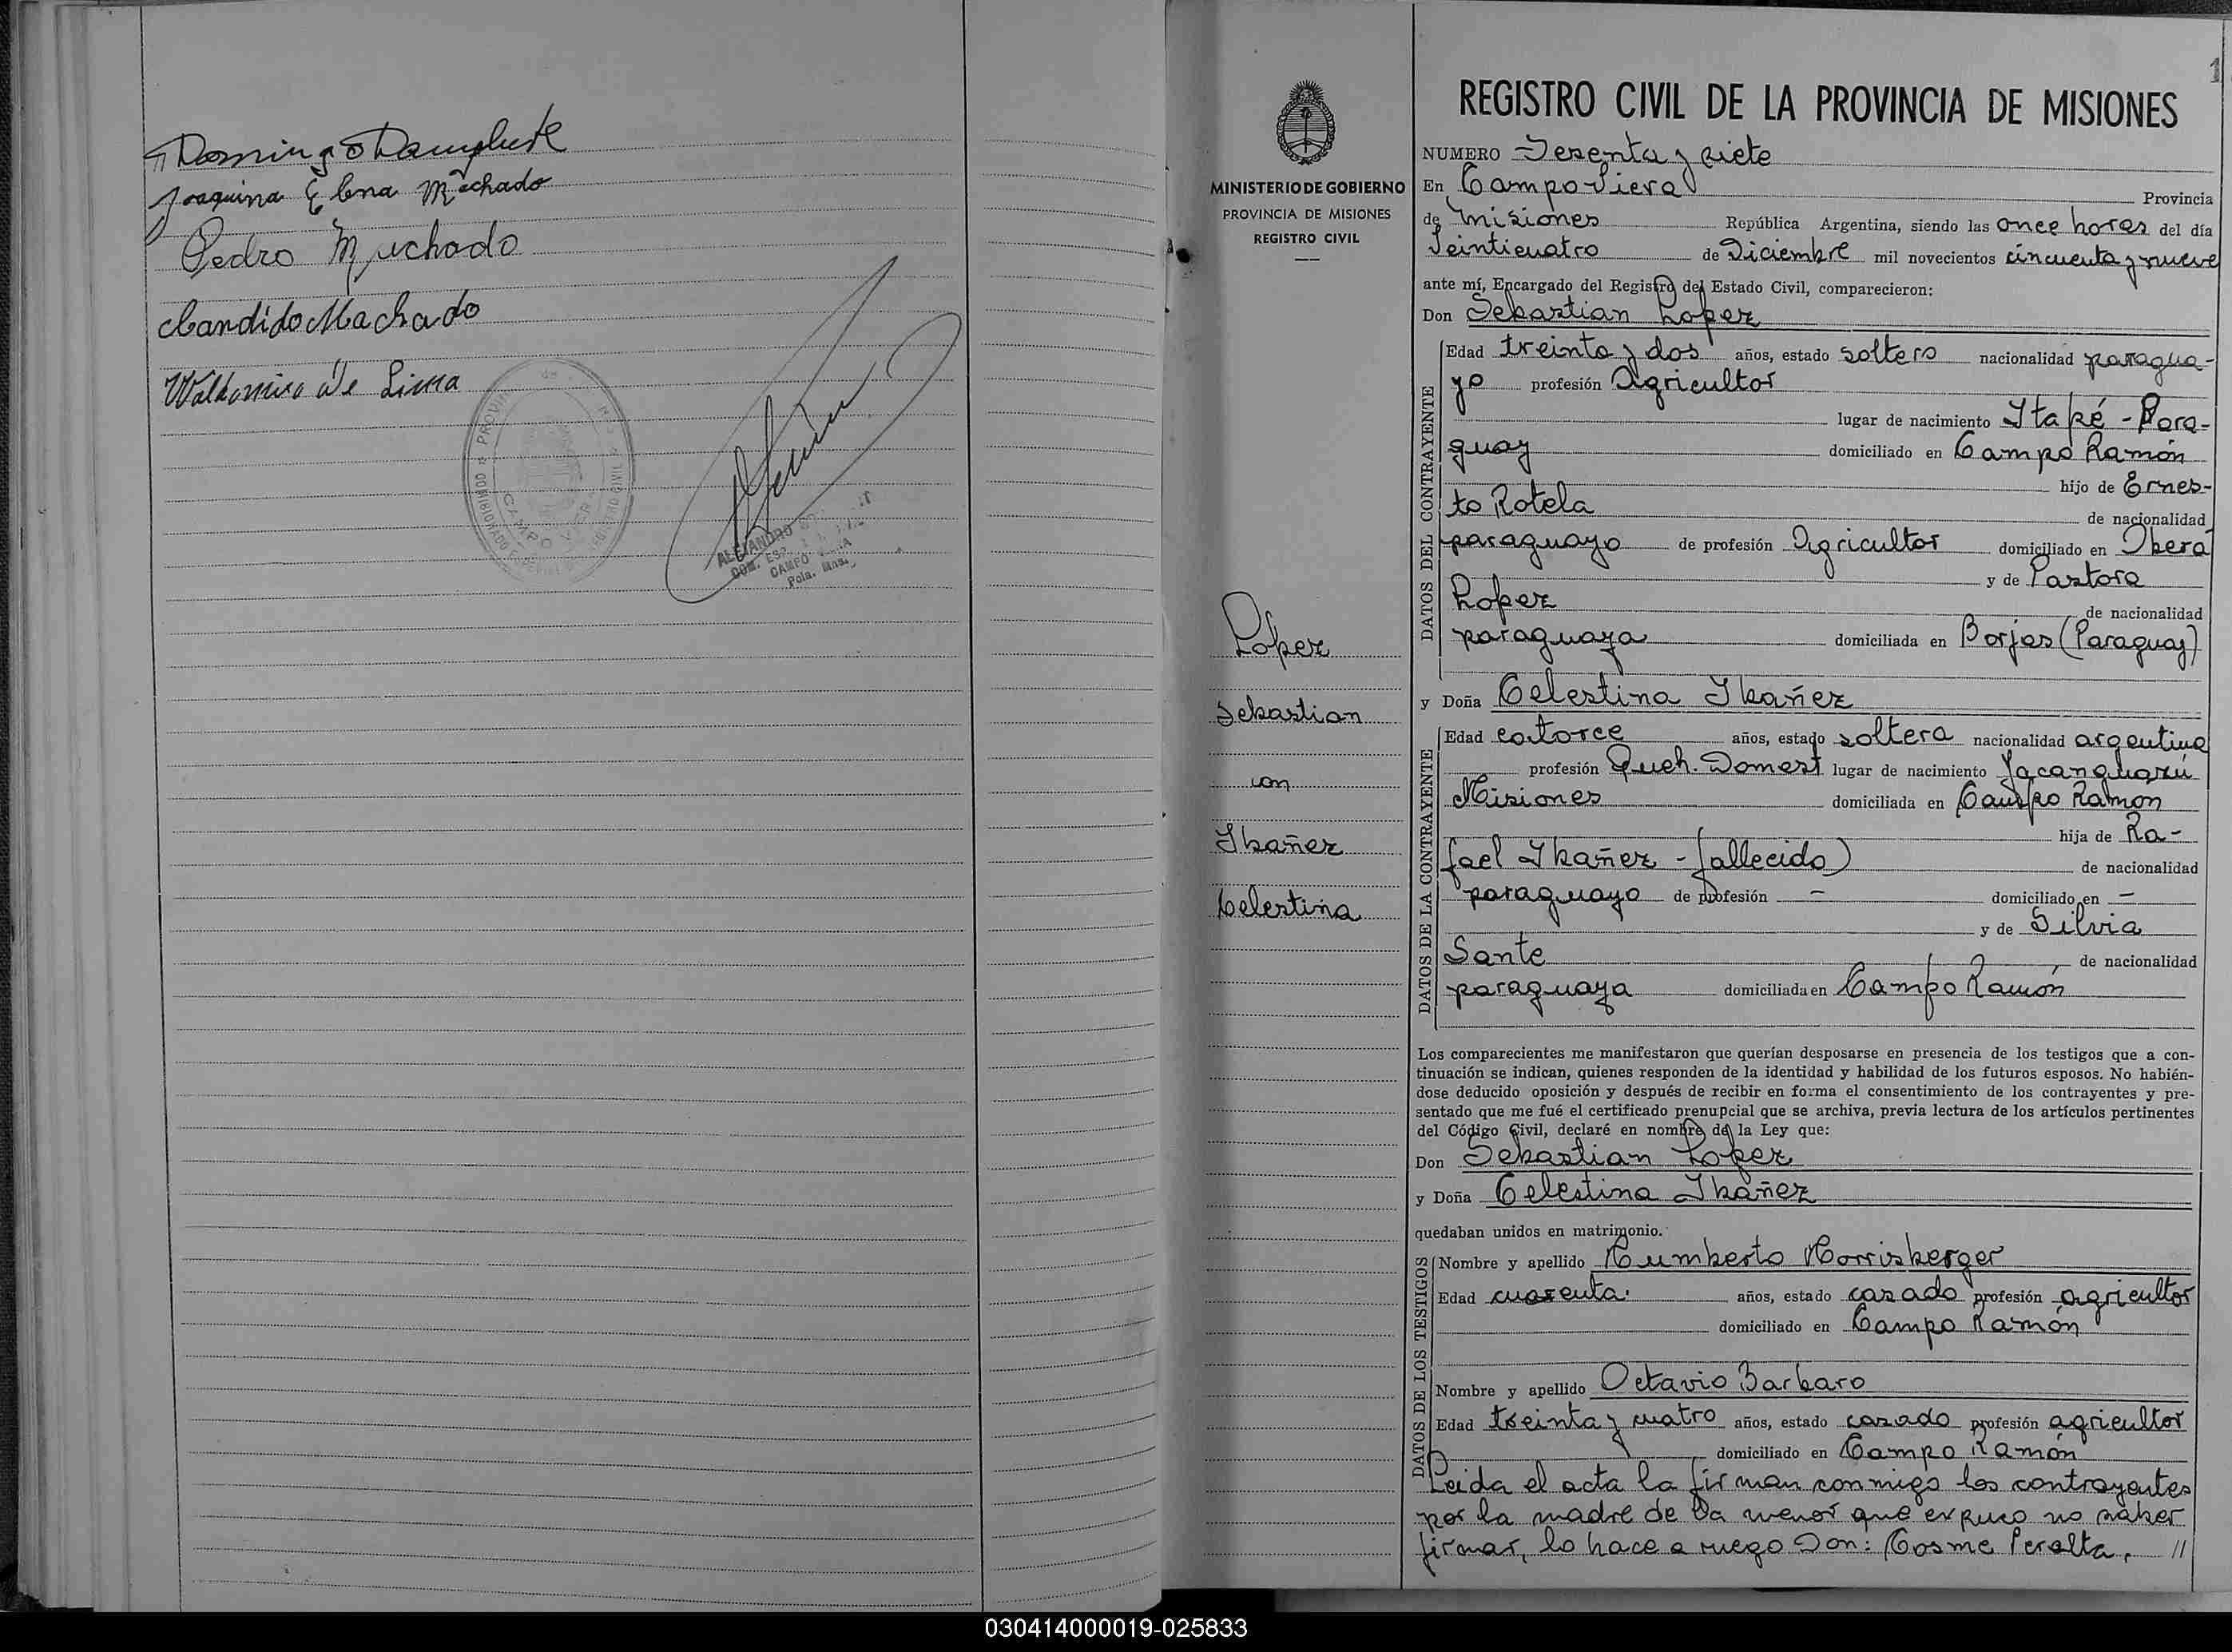 Joaquina Elena Machado
Pedro Machado
Candido Machado
Waldomiro de Lima
ALEJANDRO
COM. ESP.
CAMPO VIERA
Pcia. Mnes.
1
MINISTERIO DE GOBIERNO
PROVINCIA DE MISIONES
REGISTRO CIVIL
Lopez
Sebastian
con
Ibañez
Celestina
REGISTRO CIVIL DE LA PROVINCIA DE MISIONES
NUMERO Sesenta y siete
En Campo Viera Provincia
de Misiones República Argentina, siendo las once horas del día
Veinticuatro de Diciembre mil novecientos cincuenta y nueve
ante mí, Encargado del Registro del Estado Civil, comparecieron:
Don Sebastian Lopez
DATOS DEL CONTRAYENTE
Edad treinta y dos años, estado soltero nacionalidad paragua-
yo profesión Agricultor
lugar de nacimiento Itapé - Para-
guay domiciliado en Campo Ramón
hijo de Ernes-
to Rotela de nacionalidad
paraguayo de profesión Agricultor domiciliado en Oberá
y de Pastora
Lopez de nacionalidad
paraguaya domiciliada en Borjas (Paraguay)
y Doña Celestina Ibañez
DATOS DE LA CONTRAYENTE
Edad catorce años, estado soltera nacionalidad argentina
profesión Queh. Domest lugar de nacimiento Yacanguazú
Misiones domiciliada en Campo Ramón
hija de Ra-
fael Ibañez - fallecido) de nacionalidad
paraguayo de profesión - domiciliado en -
y de Silvia
Sante de nacionalidad
paraguaya domiciliada en Campo Ramón
Los comparecientes me manifestaron que querían desposarse en presencia de los testigos que a con-
tinuación se indican, quienes responden de la identidad y habilidad de los futuros esposos. No habién-
dose deducido oposición y después de recibir en forma el consentimiento de los contrayentes y pre-
sentado que me fué el certificado prenupcial que se archiva, previa lectura de los artículos pertinentes
del Código Civil, declaré en nombre de la Ley que:
Don Sebastian Lopez
y Doña Celestina Ibañez
quedaban unidos en matrimonio.
DATOS DE LOS TESTIGOS
Nombre y apellido Humberto Horrisberger
Edad cuarenta. años, estado casado profesión agricultor
domiciliado en Campo Ramón
Nombre y apellido Octavio Barbaro
Edad treinta y cuatro años, estado casado profesión agricultor
domiciliado en Campo Ramón
Leida el acta la firman conmigo los contrayentes
por la madre de la menor que expuso no saber
firmar, lo hace a ruego Don: Cosme Peralta. //
030414000019-025833